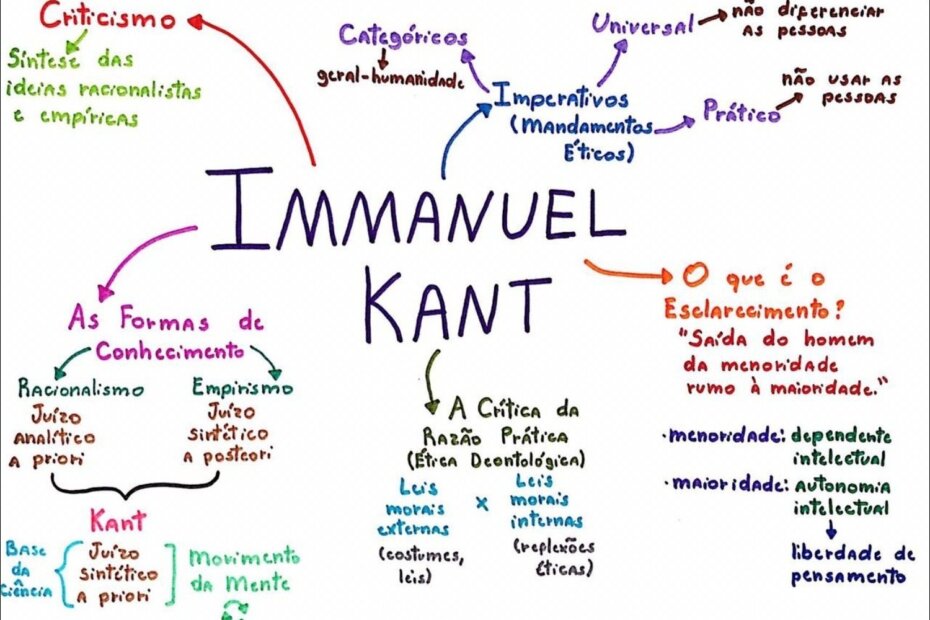 Criticismo
Síntese das
ideias racionalistas
e empíricas
Categóricos
geral-humanidade
Universal
não diferenciar
as pessoas
Imperativos
(Mandamentos
Éticos)
Prático
não usar as
pessoas
IMMANUEL
KANT
As Formas de
Conhecimento
Racionalismo
Juízo
analítico
a priori
Empirismo
Juízo
sintético
a posteori
Kant
Base
da
Ciência
Juízo
sintético
a priori
Movimento
da Mente
A Crítica da
Razão Prática
(Ética Deontológica)
Leis
morais
externas
(costumes,
leis)
x
Leis
morais
internas
(reflexões
éticas)
O que é o
Esclarecimento?
"Saída do homem
da menoridade
rumo à maioridade."
·menoridade: dependente
intelectual
·maioridade: autonomia
intelectual
liberdade de
pensamento